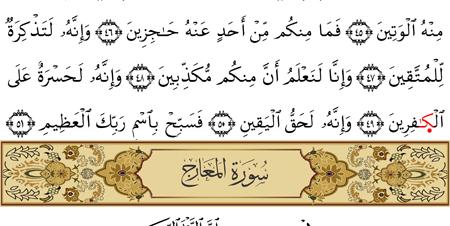 مِنْهُ ٱلْوَتِينَ ﴿٤٥﴾ فَمَا مِنكُم مِّنْ أَحَدٍ عَنْهُ حَـٰجِزِينَ ﴿٤٦﴾ وَإِنَّهُۥ لَتَذْكِرَةٌ
لِّلْمُتَّقِينَ ﴿٤٧﴾ وَإِنَّا لَنَعْلَمُ أَنَّ مِنكُم مُّكَذِّبِينَ ﴿٤٨﴾ وَإِنَّهُۥ لَحَسْرَةٌ عَلَى
ٱلْكَـٰفِرِينَ ﴿٤٩﴾ وَإِنَّهُۥ لَحَقُّ ٱلْيَقِينِ ﴿٥٠﴾ فَسَبِّحْ بِٱسْمِ رَبِّكَ ٱلْعَظِيمِ ﴿٥١﴾
سُورَةُ المَعَارِجِ